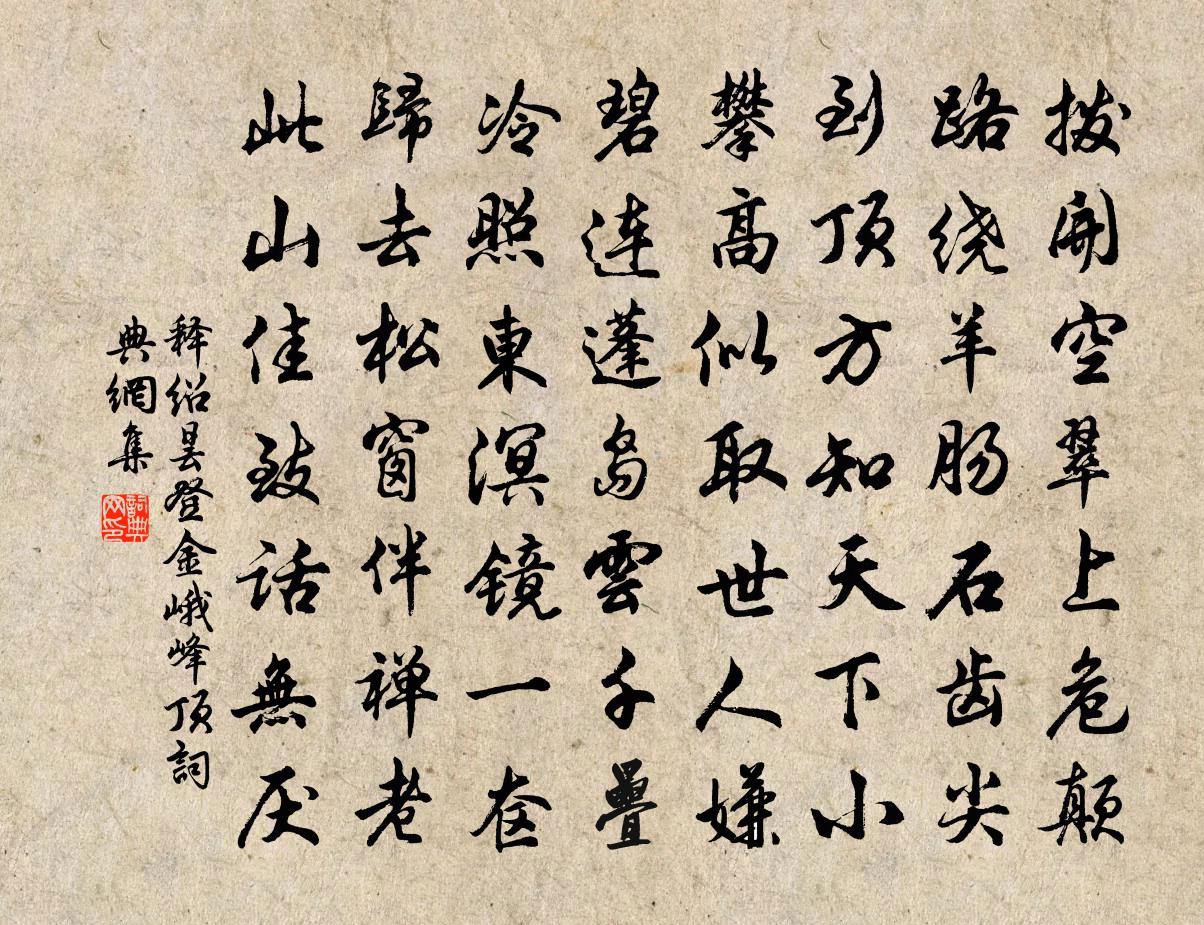 拨開空翠上危颠
路绕羊肠石齿尖
到顶方知天下小
攀高似取世人嫌
碧連蓬岛雲千疊
冷照東溟镜一奁
歸去松窗伴禅老
此山佳致话無厌
释绍昙登金峨峰顶詞
典網集
詞典
网印